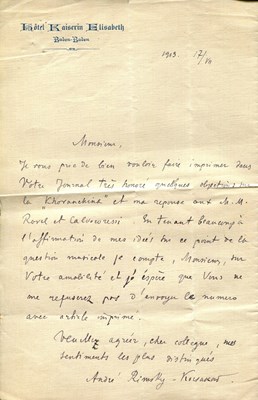 Hôtel Kaiserin Elisabeth
Baden-Baden
1913 17/VI
Monsieur,
Je vous prie de bien vouloir faire imprimer dans
Votre Journal très honoré quelques objections sur
la Khovanchina et ma reponse aux M. M.
Ravel et Calvocoressi. En tenant beaucoup à
l'affirmation de mes idées sur ce point de la
question musicale je compte, Monsieur, sur
Votre amabilité et j'éspère que Vous ne
me refuserez pas d'envoyer le numero
avec article imprimé.
Veuillez agréer, cher collegue, mes
sentiments les plus distingués
André Rimsky-Korsakow